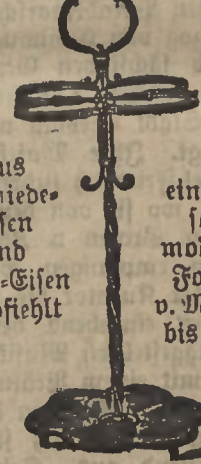 us
iede-
sen
nd
=Eisen
fiehlt
ein
mo
Fo
v. M
bis